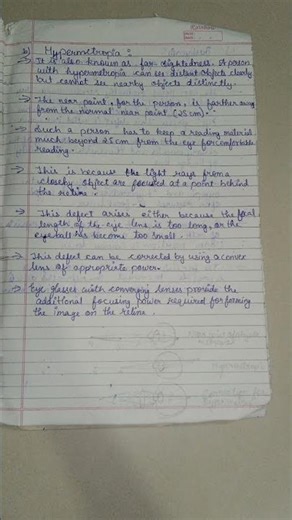 b) Hypermetropia :
→ It is also known as far-sightedness. A person
with hypermetropia can see distant objects clearly
but cannot see nearby objects distinctly.
→ The near point, for the person, is farther away
from the normal near point (25 cm).
→ Such a person has to keep a reading material
much beyond 25 cm from the eye for comfortable
reading.
→ This is because the light rays from a
closeby object are focused at a point behind
the retina.
→ This defect arises either because the focal
length of the eye lens is too long, or the
eyeball has become too small.
→ This defect can be corrected by using a convex
lens of appropriate power.
→ Eye glasses with converging lenses provide the
additional focusing power required for forming
the image on the retina.